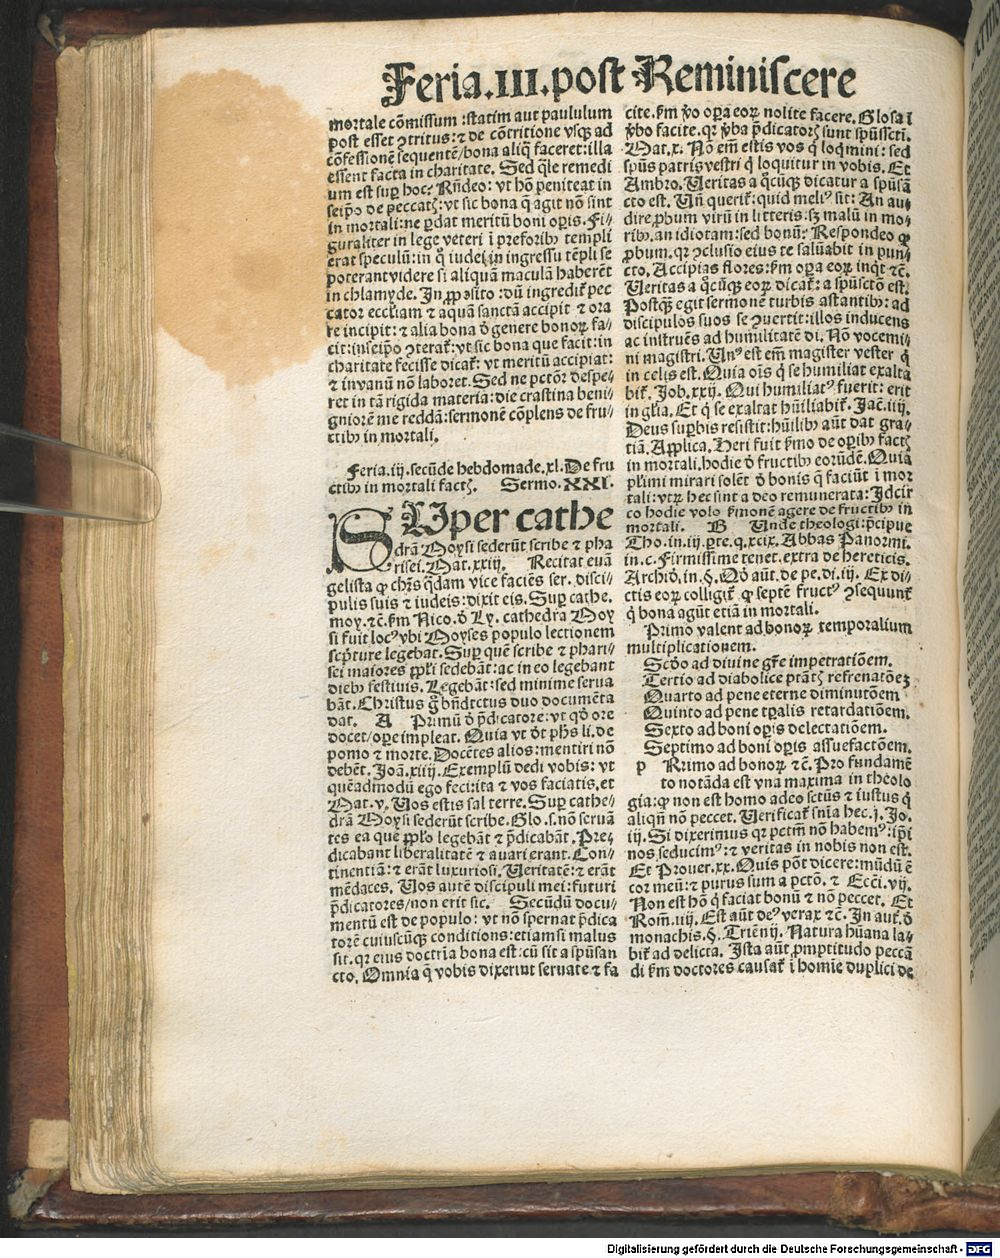 Feria.III.post Reminiscere
mortale cõmissum :statim aut paululum
post esset ꝯtritus: ⁊ de cõtritione vsqꝫ ad
cõfessionẽ sequentẽ/bona aliq̃ faceret:illa
essent facta in charitate. Sed q̃le remedi
um est suꝑ hoc? Rñdeo: vt hõ peniteat in
seip̃o de peccatꝭ: vt sic bona q̃ agit nõ sint
in mortali:ne ꝑdat meritũ boni oꝑis. Fi-
guraliter in lege veteri ĩ preforibꝰ templi
erat speculũ: in q̊ iudei in ingressu tẽpli se
poterant videre si aliquã maculã haberẽt
in chlamyde. In ꝓposito :dũ ingredit̃ pec
cator eccl'iam ⁊ aquã sanctã accipit ⁊ ora
re incipit: ⁊ alia bona õ genere bonoꝝ fa-
cit:in seip̃o ꝯterat̃:vt sic bona que facit:in
charitate fecisse dicat̃: vt meritũ accipiat:
⁊ in vanũ nõ laboret. Sed ne pctõr despe-
ret in tã rigida materia: die crastina beni-
gniorẽ me reddã:sermonẽ cõplens de fru-
ctibꝰ in mortali.
Feria.iij.secũde hebdomade.xl.De fru
ctibꝰ in mortali factꝭ. Sermo.XXI.
SUper cathe
drã Moysi sederũt scribe ⁊ pha
risei. Mat.xxiij. Recitat euã
gelista ꝙ chr̃s q̃dam vice faciẽs ser. disci-
pulis suis ⁊ iudeis: dixit eis. Suꝑ cathe.
moy. ⁊c̃. fm̃ Nico. õ Ly. cathedra Moy
si fuit locꝰ vbi Moyses populo lectionem
scp̃ture legebat. Suꝑ quẽ scribe ⁊ phari-
sei maiores ꝓpl'i sedebãt: ac in eo legebant
diebꝰ festiuis. Legebãt: sed minime serua
bãt. Christus g̊ bñdictus duo documẽta
dat. A Primũ õ p̃dicatore: vt qd̃ ore
docet/oꝑe impleat. Quia vt õt ph̃s li. de
pomo ⁊ morte. Docẽtes alios: mentiri nõ
debẽt. Joã.xiij. Exemplũ dedi vobis: vt
quẽadmodũ ego feci:ita ⁊ vos faciatis. et
Mat.v. Vos estis sal terre. Suꝑ cathe-
drã Moysi sederũt scribe. Glo .s. nõ seruã
tes ea que ꝓpl'o legebãt ⁊ p̃dicabãt. Pre-
dicabant liberalitatẽ ⁊ auari erant. Con-
tinentiã: ⁊ erãt luxuriosi. Veritatẽ: ⁊ erãt
mẽdaces. Vos autẽ discipuli mei: futuri
p̃dicatores/non erit sic. Secũdũ docu-
mentũ est de populo: vt nõ spernat p̃dica
torẽ cuiuscũqꝫ conditionis:etiamsi malus
sit. qr eius doctrĩa bona est:cũ sit a sp̃usan
cto. Omnia q̃ vobis dixerint seruate ⁊ fa
cite. fm̃ ṽo oꝑa eoꝝ nolite facere. Glosa ĩ
ṽbo facite. qr ṽba p̃dicatorꝭ sunt sp̃ussctĩ.
Mat.x. Nõ em̃ estis vos q̃ loq̃mini: sed
sp̃us patris vestri q̃ loquitur in vobis. Et
Ambro. Veritas a q̊cũqꝫ dicatur a sp̃usã
cto est. Uñ querit̃: quid meliꝰ sit: An au-
dire ꝓbum virũ in litteris. sꝫ malũ in mo-
ribꝰ. an idiotam: sed bonũ? Respondeo ꝙ
ꝓbum. qr ꝯclusio eius te saluabit in pun-
cto. Accipias flores: fm̃ oꝑa eoꝝ inq̃t ⁊c̃.
Veritas a q̊cũqꝫ eoꝝ dicat̃: a sp̃usctõ est.
Postqꝫ egit sermonẽ turbis astantibꝰ: ad
discipulos suos se ꝯuertit: illos inducens
ac instruẽs ad humilitatẽ di. Nõ vocemi-
ni magistri. Unꝰ est em̃ magister vester q̃
in celis est. Quia oĩs q̃ se humiliat exalta
bit̃. Job.xxij. Qui humiliatꝰ fuerit: erit
in gl'ia. Et q̃ se exaltat hũiliabit̃. Jac̃.iiij.
Deus suꝑbis resistit: hũilibꝰ aũt dat gra-
tiã. Applica. Heri fuit ẽmo de oꝑibꝰ factꝭ
in mortali. hodie õ fructibꝰ eorũdẽ. Quia
pl'imi mirari solẽt õ bonis q̃ faciũt ĩ mor
tali: vtꝝ hec sint a deo remunerata: Idcir
co hodie volo ẽmonẽ agere de fructibꝰ in
mortali. B Unde theologi: p̃cipue
Tho.in.iij.ꝑte.q.xcix. Abbas Panormi.
in.c. Firmissime tenet. extra de hereticis.
Archid̃.in.§. Qd̃ aũt. de pe. di. iij. Ex di-
ctis eoꝝ colligit̃ ꝙ septẽ fructꝰ ꝯsequunt̃
q̃ bona agũt etiã in mortali.
Primo valent ad bonoꝝ temporalium
multiplicationem.
Scd̃o ad diuine gr̃e impetratiõem.
Tertio ad diabolice pt̃atꝭ refrenatõeꝫ
Quarto ad pene eterne diminutõem
Quinto ad pene tꝑalis retardatiõem.
Sexto ad boni oꝑis delectatiõem.
Septimo ad boni oꝑis assuefactõem.
p Rrimo ad bonoꝝ ⁊c̃. Pro fundamẽ
to notãda est vna maxima in theolo
gia: ꝙ non est homo adeo sctũs ⁊ iustus q̃
aliqñ nõ peccet. Verificat̃ sñia hec.j. Jo.
iij. Si dixerimus qr pctm̃ nõ habemꝰ: ip̃i
nos seducimꝰ: ⁊ veritas in nobis non est.
Et Prouer.xx. Quis põt dicere: mũdũ ẽ
cor meũ: ⁊ purus sum a pctõ. ⁊ Ecci.vij.
Non est hõ q̃ faciat bonũ ⁊ nõ peccet. Et
Rom̃.iij. Est aũt deꝰ verax ⁊c̃. In aut̃. õ
monachis.§. Triẽnij. Natura hũana la-
bit̃ ad delicta. Ista aũt ꝓmptitudo peccã
di fm̃ doctores causat̃ ĩ homĩe duplici de
Digitalisierung gefördert durch die Deutsche Forschungsgemeinschaft - DFG